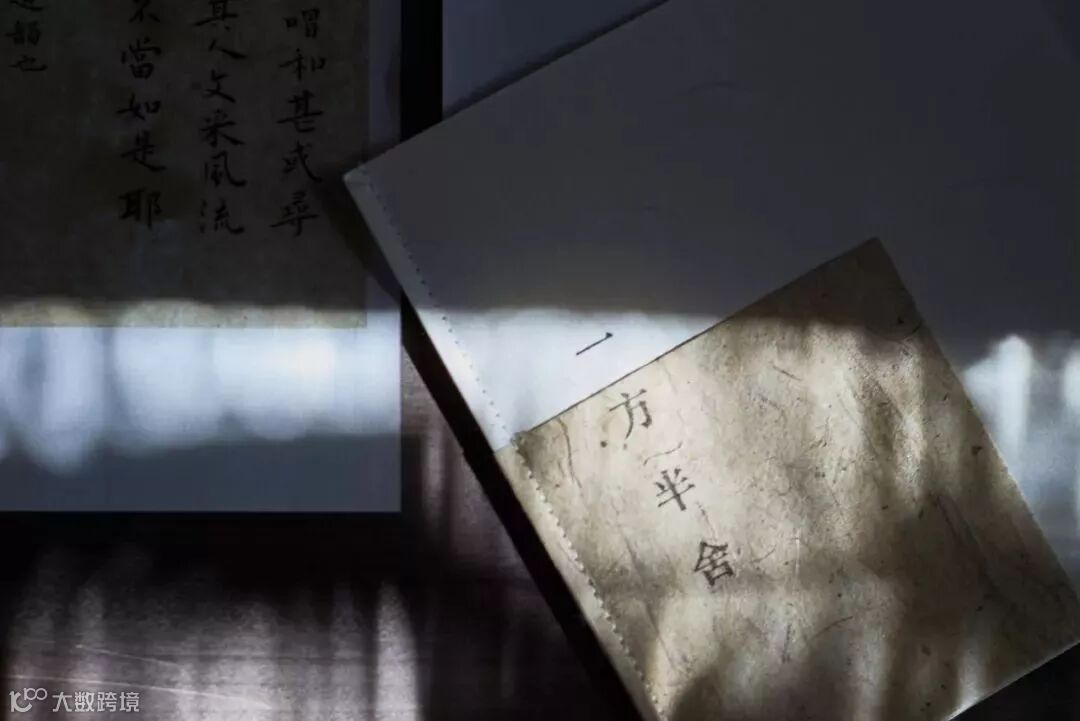 唱和甚或尋
人文采風流
當如是耶
韶也
一方半舍
大数跨境